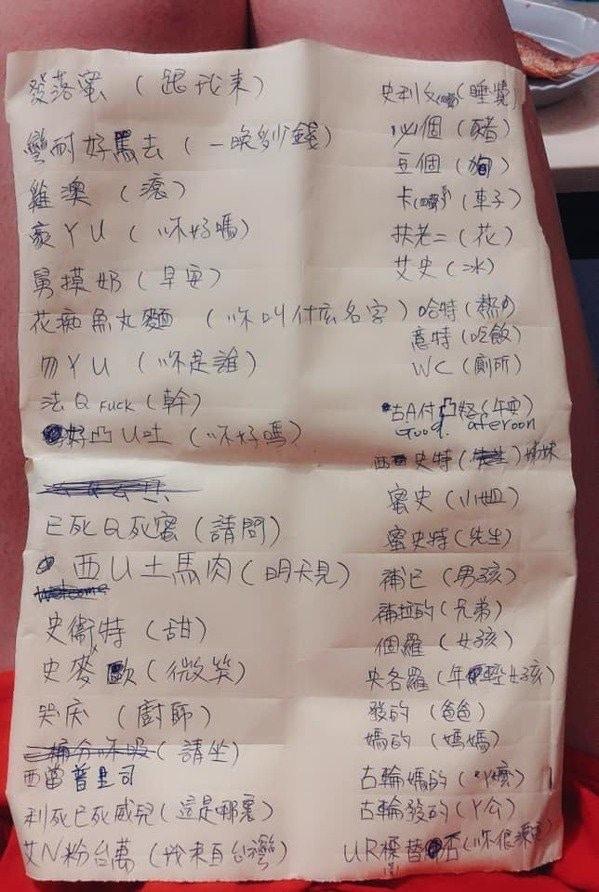 發落蜜 (跟我來)
變耐好馬去 (一晚多少錢)
雞澳 (滾)
豪YU (你好嗎)
舅摸奶 (早安)
花痴魚丸麵 (你叫什広名字)
勿YU (你是誰)
法Q FUCK (幹)
好凸U吐 (你好嗎)
已死Q死蜜 (請問)
西U土馬肉 (明天見)
Welcome
史衛特 (甜)
史麥歐 (微笑)
哭庆 (廚師)
(請坐)
西當普里司
利死已死威兒 (這是哪裏)
艾N粉台萬 (我來自台灣)
史利 (睡覺)
必個 (豬)
豆個 (狗)
卡 (車子)
扶老二 (花)
艾史 (冰)
哈特 (熱的)
意特 (吃飯)
WC (廁所)
古A付凸怒 (午安)
Good aferoon
西史特 (先生) 姊妹
蜜史 (小姐)
蜜史特 (先生)
補已 (男孩)
補拉的 (兄弟)
個羅 (女孩)
央各羅 (年輕女孩)
發的 (爸爸)
媽的 (媽媽)
古輪媽的 (丫嬤)
古輪發的 (丫公)
UR標替否 (你很漂亮)